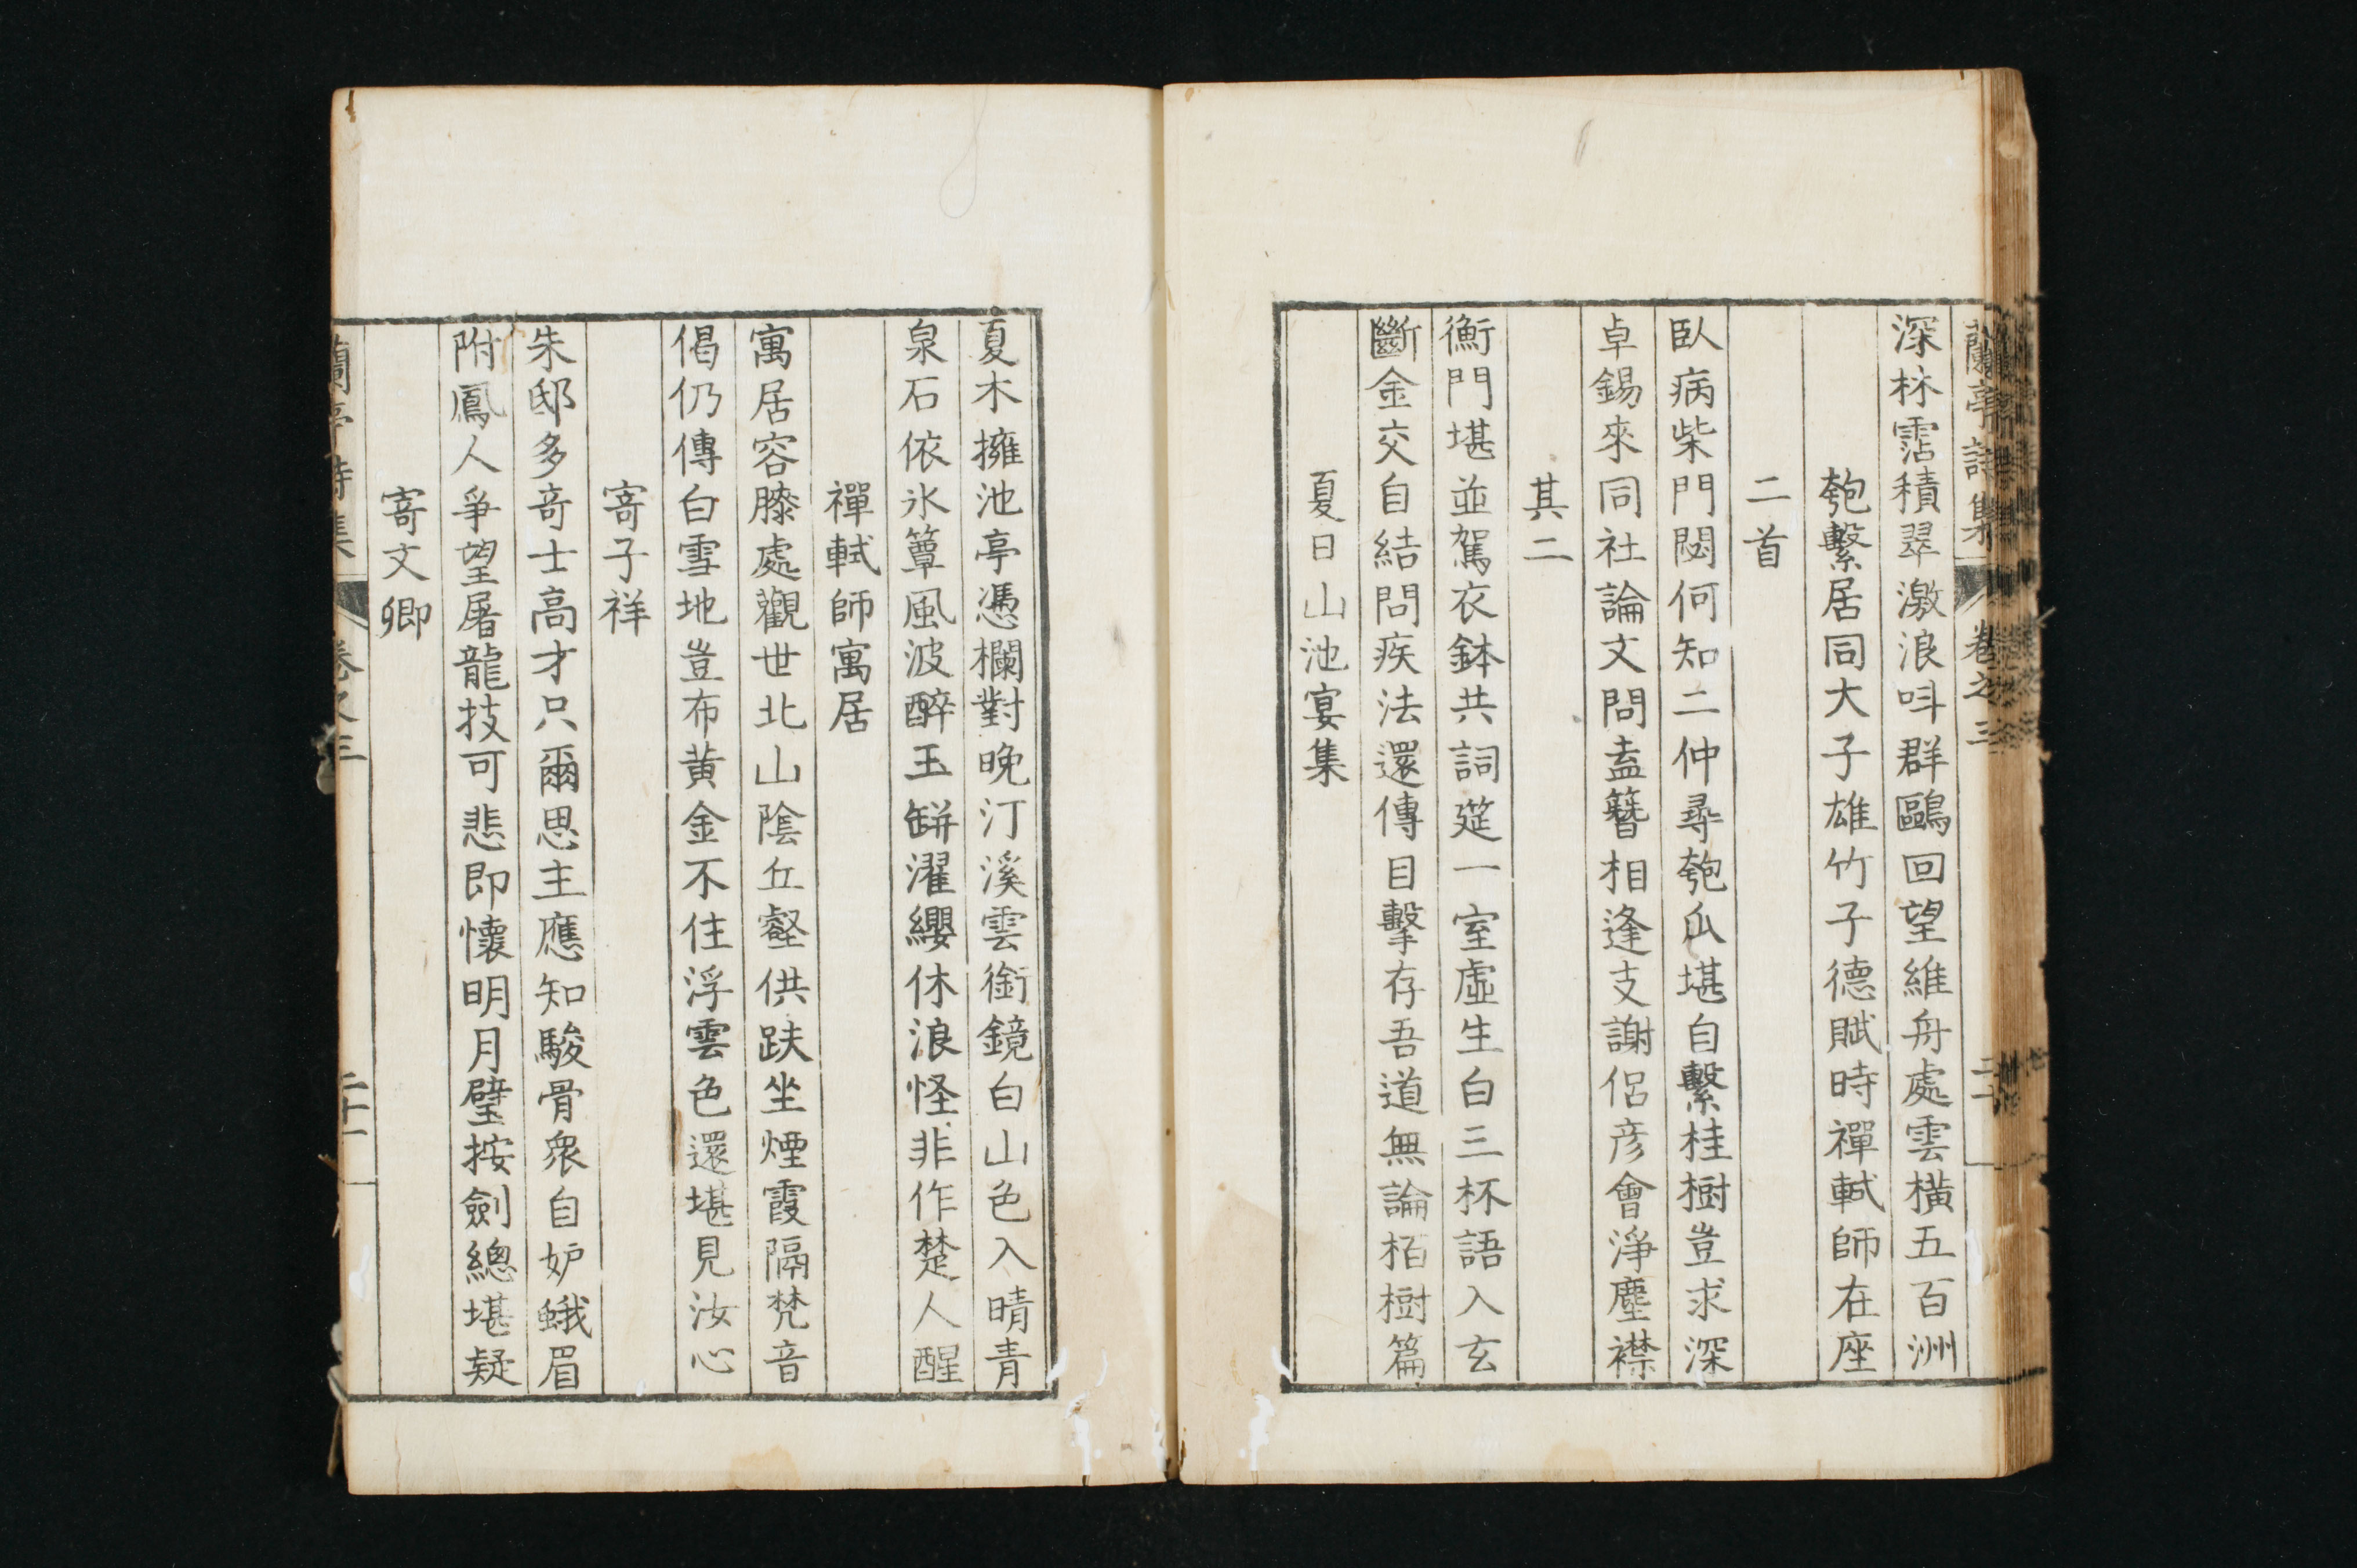 蘭亭詩集 卷之三 二十
深林霑積翠激浪呌群鷗回望維舟處雲橫五百洲
匏繫居同大子雄竹子德賦時禪軾師在座
二首
臥病柴門閟何知二仲尋匏瓜堪自繫桂樹豈求深
卓錫來同社論文問盍簪相逢支謝侶彦會淨塵襟
其二
衡門堪並駕衣鉢共詞筵一室虛生白三杯語入玄
斷金交自結問疾法還傳目擊存吾道無論栢樹篇
夏日山池宴集
夏木擁池亭憑欄對晚汀溪雲銜鏡白山色入晴青
泉石依氷簟風波醉玉缾濯纓休浪怪非作楚人醒
禪軾師寓居
寓居容膝處觀世北山陰丘壑供趺坐煙霞隔梵音
偈仍傳白雪地豈布黃金不住浮雲色還堪見汝心
寄子祥
朱邸多奇士高才只爾思主應知駿骨衆自妒蛾眉
附鳳人爭望屠龍技可悲即懷明月璧按劍總堪疑
寄文卿
蘭亭詩集 卷之三 二十一